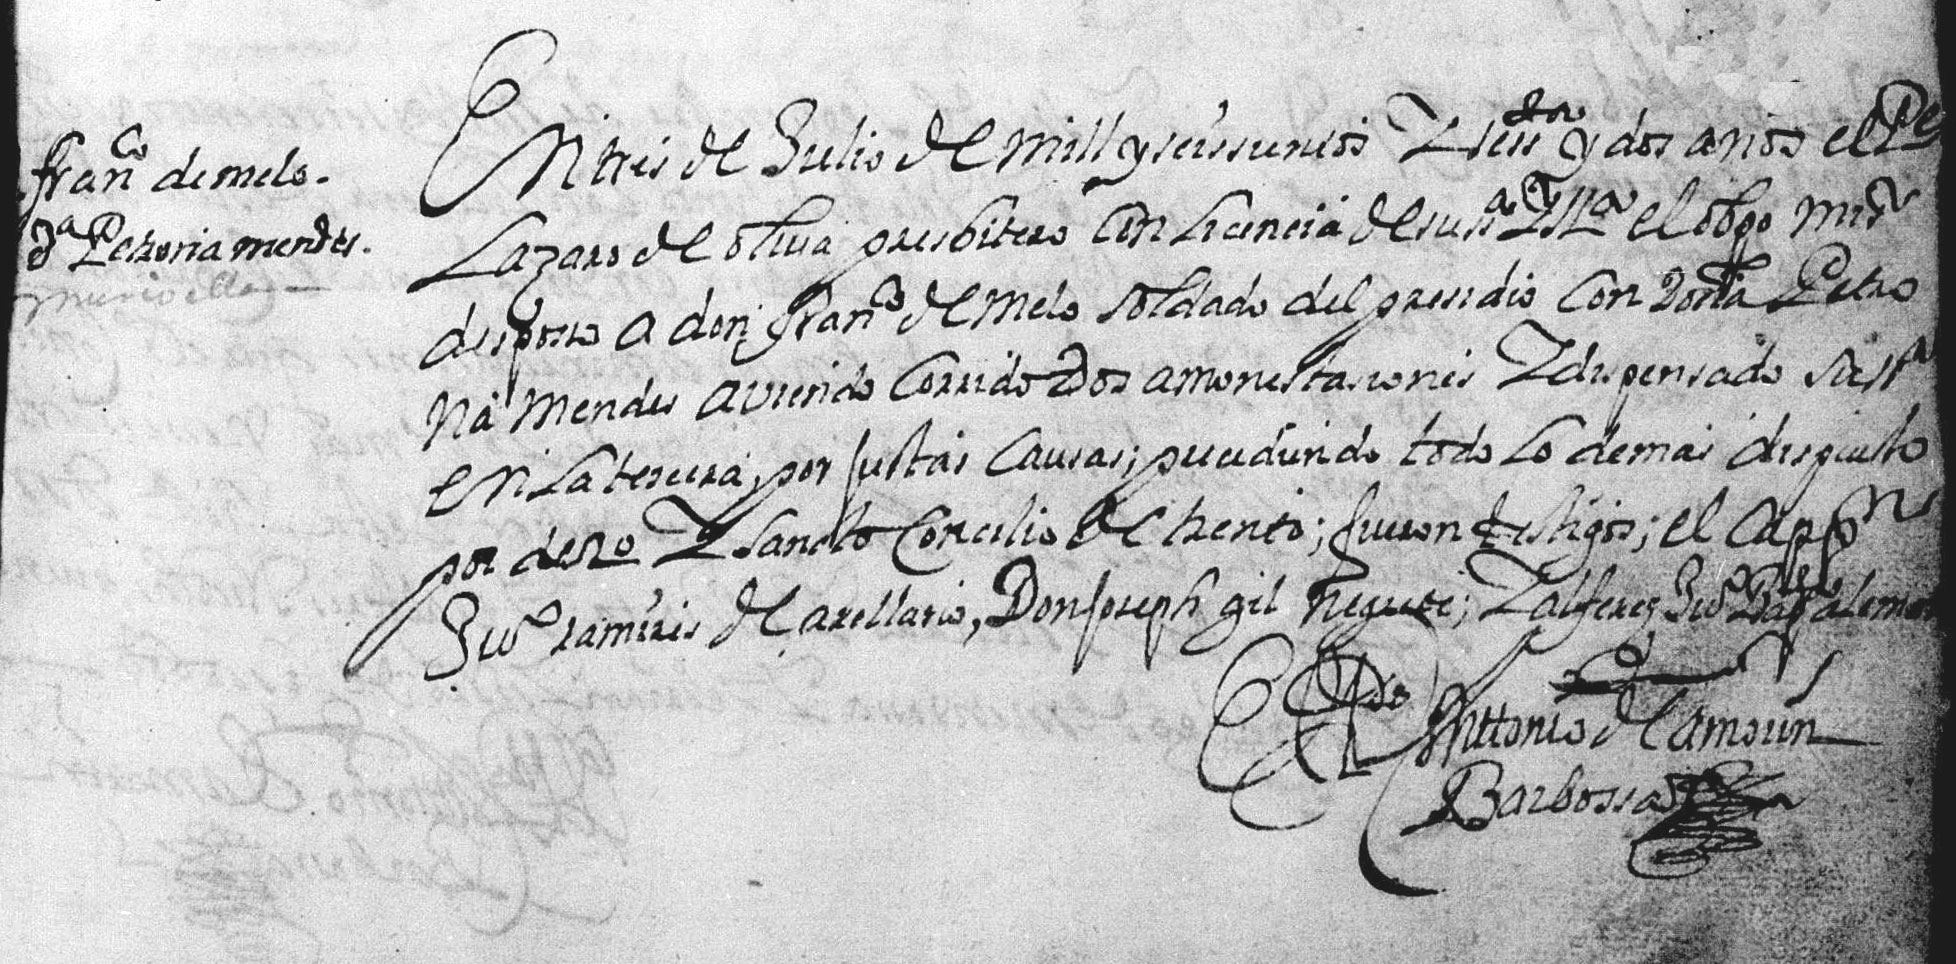 fran.co de melo.
d.a Petrona mendes.
murio ella
En tres de Julio de mill y seissientos Y sess.ta y dos años el P.e
Lazaro de oliva presbitero Con Licencia de su s.a Yll.a el obpo mi s.r
desposo a don fran.co de Melo soldado del presidio Con Doña Petro
na Mendes aviendo Corrido Dos amonestasiones Y dispensado
en La tersera, por justas Causas; presedindo todo Lo demas dispuesto
por dero Y sancto Concilio de trento; fueron testigos; el Capp.n
Ju.o ramires de arellano, Don joseph gil negrete; Y alferez Ju.o Bap.ta aleman
Antonio de Camoin
Barbossa